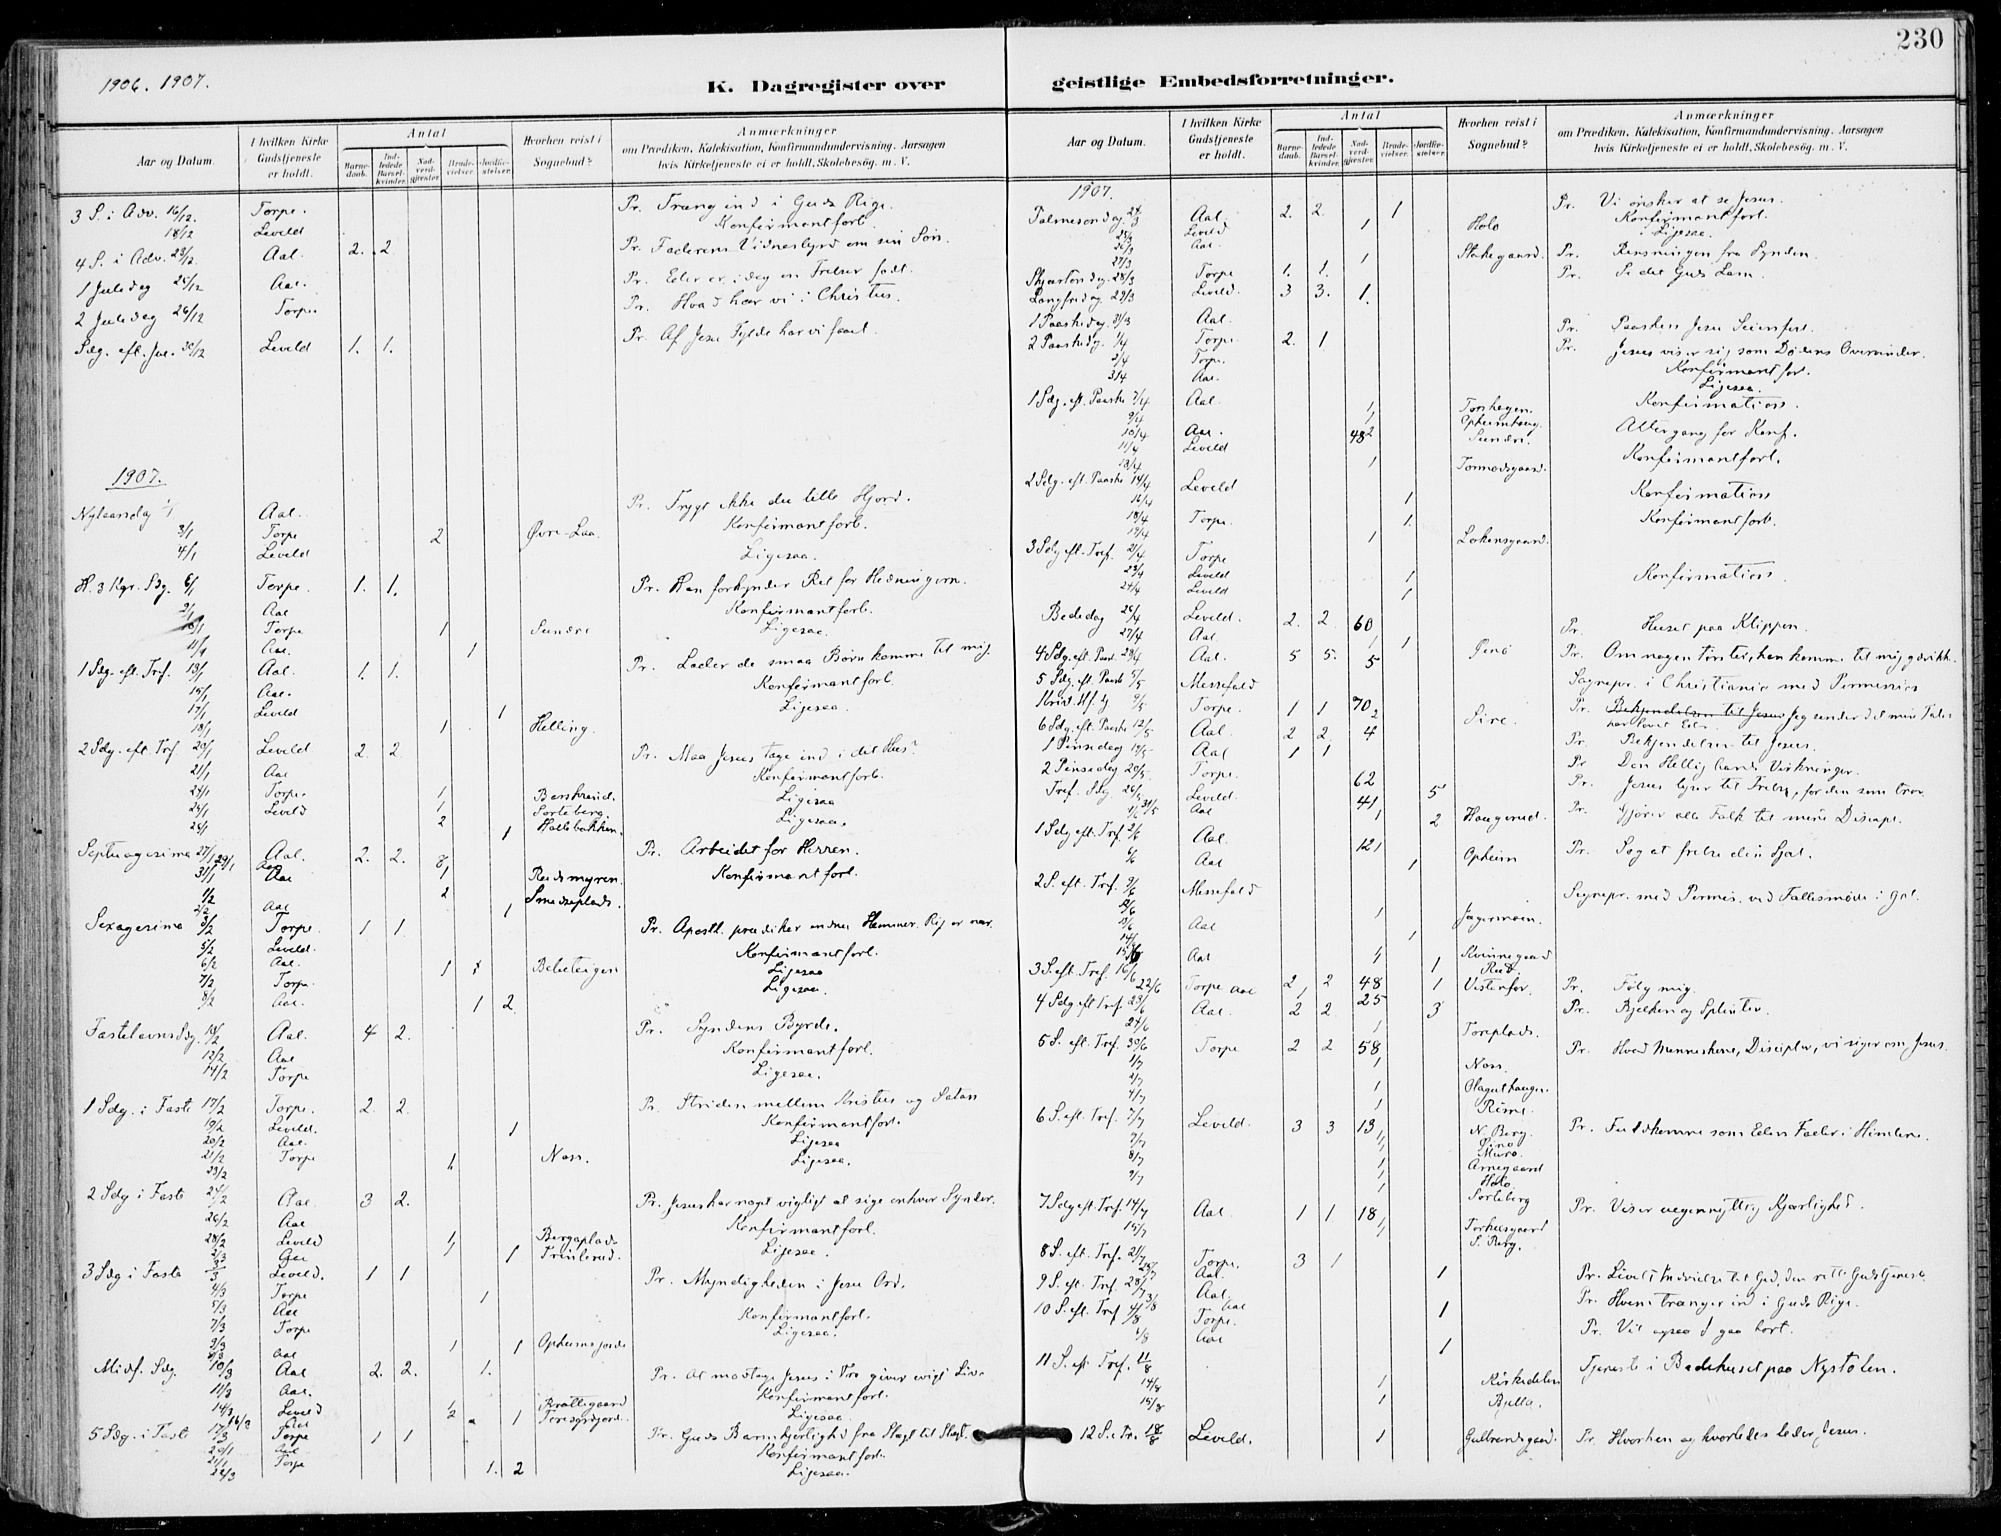 230
1906. 1907.
K. Dagregister over
Aar og Datum.
I hvilken Kirke Gudstjeneste er holdt.
Antal
Barnedaab.
Indledede Barselkvinder.
Nadverdgjester.
Brudevielser.
Jordfæstelser.
Hvorhen reist i Sognebud?
Anmærkninger
om Prædiken, Katekisation, Konfirmandundervisning. Aarsagen
hvis Kirketjeneste ei er holdt, Skolebesög. m. V.
3 S. i Adv. 16/12. Torpe. Pr. Træng ind i Guds Rige.
18/12 Leveld Konfirmantforb.
4 S. i Adv. 23/12. Aal. 2. 2 Pr. Faderens Vidnesbyrd om sin Søn.
1 Juledag 25/12 Aal. Pr. Eder er idag en Frelser født.
2 Juledag 26/12 Torpe Pr. Hvad har vi i Christus.
Sdg. eft. Jul. 30/12 Leveld 1. 1. Pr. Af Jesu Fylde har vi faaet.
1907.
Nytaarsdag 1/1 Aal. Pr. Frygt ikke du lille Hjord.
3/1 Torpe 2 Øvre-Laa Konfirmantforb.
4/1 Leveld Ligesaa.
H. 3 Kgr. Sdg. 6/1 Torpe. 1. 1. Pr. Han forkynder Ret for Hedningern.
Aal Konfirmantforb.
Torpe 1 Sundre Ligesaa.
11/1 Aal. 1
1 Sdg. eft. Trf. 13/1 Aal. 1. 1. Pr. Lader de smaa Børn komme til mig.
15/1 Aal. Konfirmantforb.
17/1 Leveld 1 Ligesaa.
18/1 1 Helling.
2 Sdg. eft. Trf. 20/1 Leveld 2 2 Pr. Maa Jesus tage ind i dit Hus?
21/1 Aal Konfirmantforb.
24/1 Torpe. 1 Ligesaa
25/1 Leveld 1 Sorteberg. Ligesaa.
26/1 2 1 Hallebakken.
Septuagesima 27/1 Aal. 2. 2. Pr. Arbeidet for Herren.
29/1 Aal
31/1 Aal 1 Rudsmyren. Konfirmantforb.
1/2 2
2/2 Aal 1
Sexagesima 3/2 Torpe. 1 1 Pr. Apostl. prædiker endnu Himmer. Rig er nær.
5/2 Leveld. Konfirmantforb.
6/2 Aal. 1 Ligesaa
7/2 Torpe. Ligesaa.
8/2 Aal. 1 2
FastelavnsSdg. Aal. 4 2. Pr. Syndens Byrde.
12/2 Aal Konfirmantforb.
14/2 Torpe Ligesaa.
1 Sdg. i Faste 17/2 Torpe. 2. 2. Pr. Striden mellem Kristus og Satan
19/2 Leveld. 1 Konfirmantforb.
20/2 Aal. Ligesaa
21/2 Torpe Næss. Ligesaa.
23/2 1
2 Sdg i Faste 24/2 Aal. 3 2. Pr. Jesus har noget vigtigt at sige enhver Synder.
26/2 Aal Konfirmantforb.
28/2 Leveld 1 Bergaplads Ligesaa.
2/3 Aal 1 1
3 Sdg i Faste 3/3 Leveld. 1 1 Pr. Myndigheden i Jesu Ord.
4/3 Torpe 1
5/3 Aal Konfirmantforb.
7/3 Torpe Ligesaa.
9/3 Aal 1 1
Midf. Sdg. 10/3 Aal 2. 2. 1. Pr. At modtage Jesus i Tro giver evigt Liv.
11/3 Aal. Konfirmantforb.
14/3 Leveld 1 Brattegaard Ligesaa
16/3 Aal 2 1
5 Sdg. i Faste 17/3 Torpe 1 1 Pr. Guds Barmhjertighed fra Slægt til Slægt.
20/1 Aal Konfirmantforb.
21/1 Torpe Ligesaa.
22/3 1. 2
geistlige Embedsforretninger.
Aar og Datum.
I hvilken Kirke Gudstjeneste er holdt.
Antal
Barnedaab.
Indledede Barselkvinder.
Nadverdgjester.
Brudevielser.
Jordfæstelser.
Hvorhen reist i Sognebud?
Anmærkninger
om Prædiken, Katekisation, Konfirmandundervisning. Aarsagen
hvis Kirketjeneste ei er holdt, Skolebesög. m. V.
1907.
Palmesøndag 24/3 Aal. 2. 2. 1 Pr. Vi ønsker at se Jesus.
25/3 Leveld 1 Holo Konfirmantforb.
26/3 Aal. Ligesaa.
27/3 1 Stakegaard. Pr. Rensningen fra Synden.
Skjærtorsdg. 28/3 Torpe 1. 1. Pr. Se det Guds Lam.
Langfredag 29/3 Leveld. 3 3. 1.
1 Paaskedag. 31/3 Aal. Pr. Paasken Jesu Seiersfest.
2 Paaskedg. 1/4 Torpe. 2. 1 Pr. Jesus viser sig som Dødens Overvinder.
2/4 Torpe. Konfirmantfor.
3/4 Aal. Ligesaa.
1 Sdg. eft. Paaske 7/4 Aal. Konfirmation.
9/4 1 Torshagen.
10/4 Aal. 48 2 Sundre. Altergang for Konf.
11/4 Leveld Konfirmantforb.
13/4 1 Tormodsgaard.
2 Sdg. eft. Paaske 14/4 Leveld Konfirmation
16/4 1
18/4 Torpe. 1. Konfirmantforb.
19/4 1
3 Sdg eft. 21/4 Torpe Konfirmation.
23/4 Leveld 1
24/4 Leveld 1
Bededag 26/4 Leveld. 2. 2 60 Pr. Huset paa Klippen.
27/4 Aal. 1 1
4 Sdg. eft. Paask 28/4 Aal. 5 5. 5 Pr. Om nogen tørster, han komme til mig og drikk.
5 Sdg. eft. Paask 5/5 Messefald Sognepr. i Christiania med Permission
Krist. Hf. dg 9/5 Torpe. 1 1 70 2 Sire. Pr. Bekjendelsen til Jesus Jeg sender det min Fader har lovet Eder
6 Sdg. eft. Paaske 12/5 Aal. 2 2 4 Pr. Bekjendelsen til Jesus.
1 Pinsedag 19/5 Aal 1 1 Pr Den Hellig Aands Virkninger.
2 Pinsedag 20/5 Torpe. 62 Pr. Jesus lyser til Frelse, for den som tror.
Tref. Sdg 26/5 Leveld 41 5 Pr. Gjører alle Folk til mine Discipl.
31/5 Aal 1 2 Haugerud.
1 Sdg. eft Tref 2/6 Aal. 12 1 Opheim Pr. Søg at frelse din Sjæl.
6/6 Aal 1
2 S. eft. Tref. 9/6 Messefald Sognepr. med Permis. ved Fællesmøde i Gol.
1 Jagermoen.
13/6 Aal
14/6 1
15/6 Aal 1 1 Kvinnegaard Rud
3 S. eft. Tref. 16/6 Torpe 2 2 48 1 Vestenfor. Pr. Følg mig.
22/6 Aal
4 Sdg eft Tref 23/6 Aal. 2 2 25 3 Pr. Bjelken og Splinten.
24/6 1 Toreplads.
5 S. eft. Tref. 30/6 Torpe 2 2 58 Pr. Hvad Menneskene, Disciple, vi siger om Jesus.
1/7 1 Næss.
2/7 1
4/7 1 Rime.
6 S. eft. Tref. 7/7 Leveld. 3 3 13 N. Berg. Pr. Fuldkomne som Eders Fader i Himlene.
8/7 1 Arnegaard
9/7 1 Holo
Sorteberg
7 Sdg eft. Tref. 14/7 Aal. 1 1 18 Pr. Viser uegennyttig Kjærlighed.
15/7 1 Torkelsgaard S. Berg.
8 S. eft. Tref. 21/7 Torpe. 3 1
Aal. 1
9 S. eft. Tref. 28/7 Aal. Pr. Livets Indvielse til Gud, den rette Gudstjeneste.
3/8 Aal 1
10 S. eft. Tref 4/8 Torpe. Pr. Hvem trænger ind i Guds Rige.
6/8 Aal 1 Pr. Vil ogsaa I gaa bort.
11 S. eft Tref. 11/8 Tjeneste i Badehuset paa Nystølen.
14/8 1 Kirkedelen
15/8 1
12 S. e. Tr. 18/8 Leveld. 1 Gulbrandsgaard. Pr. Hvorhen og hvorledes leder Jesus.